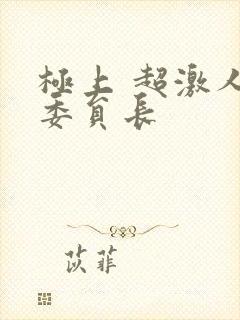 極上 超激人
委員長
苡菲